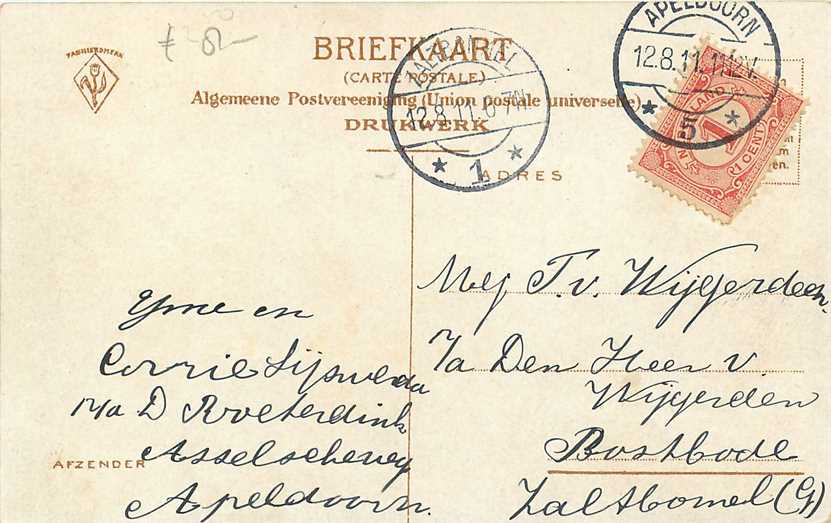 FABRIEKSMERK
BRIEFKAART
(CARTE POSTALE)
Algemeene Postvereeniging (Union postale universelle)
DRUKWERK
12.8.11.6-7N
1
APELDOORN
12.8.11.11-12V.
5
1
1 CENT
ADRES
Mej T. v. Wijgerden
p/a Den Heer v.
Wijgerden
Postbode
Zaltbomel (G)
Yme en
Corrie
p/a D Roeterdink
Asselscheweg
AFZENDER
Apeldoorn.